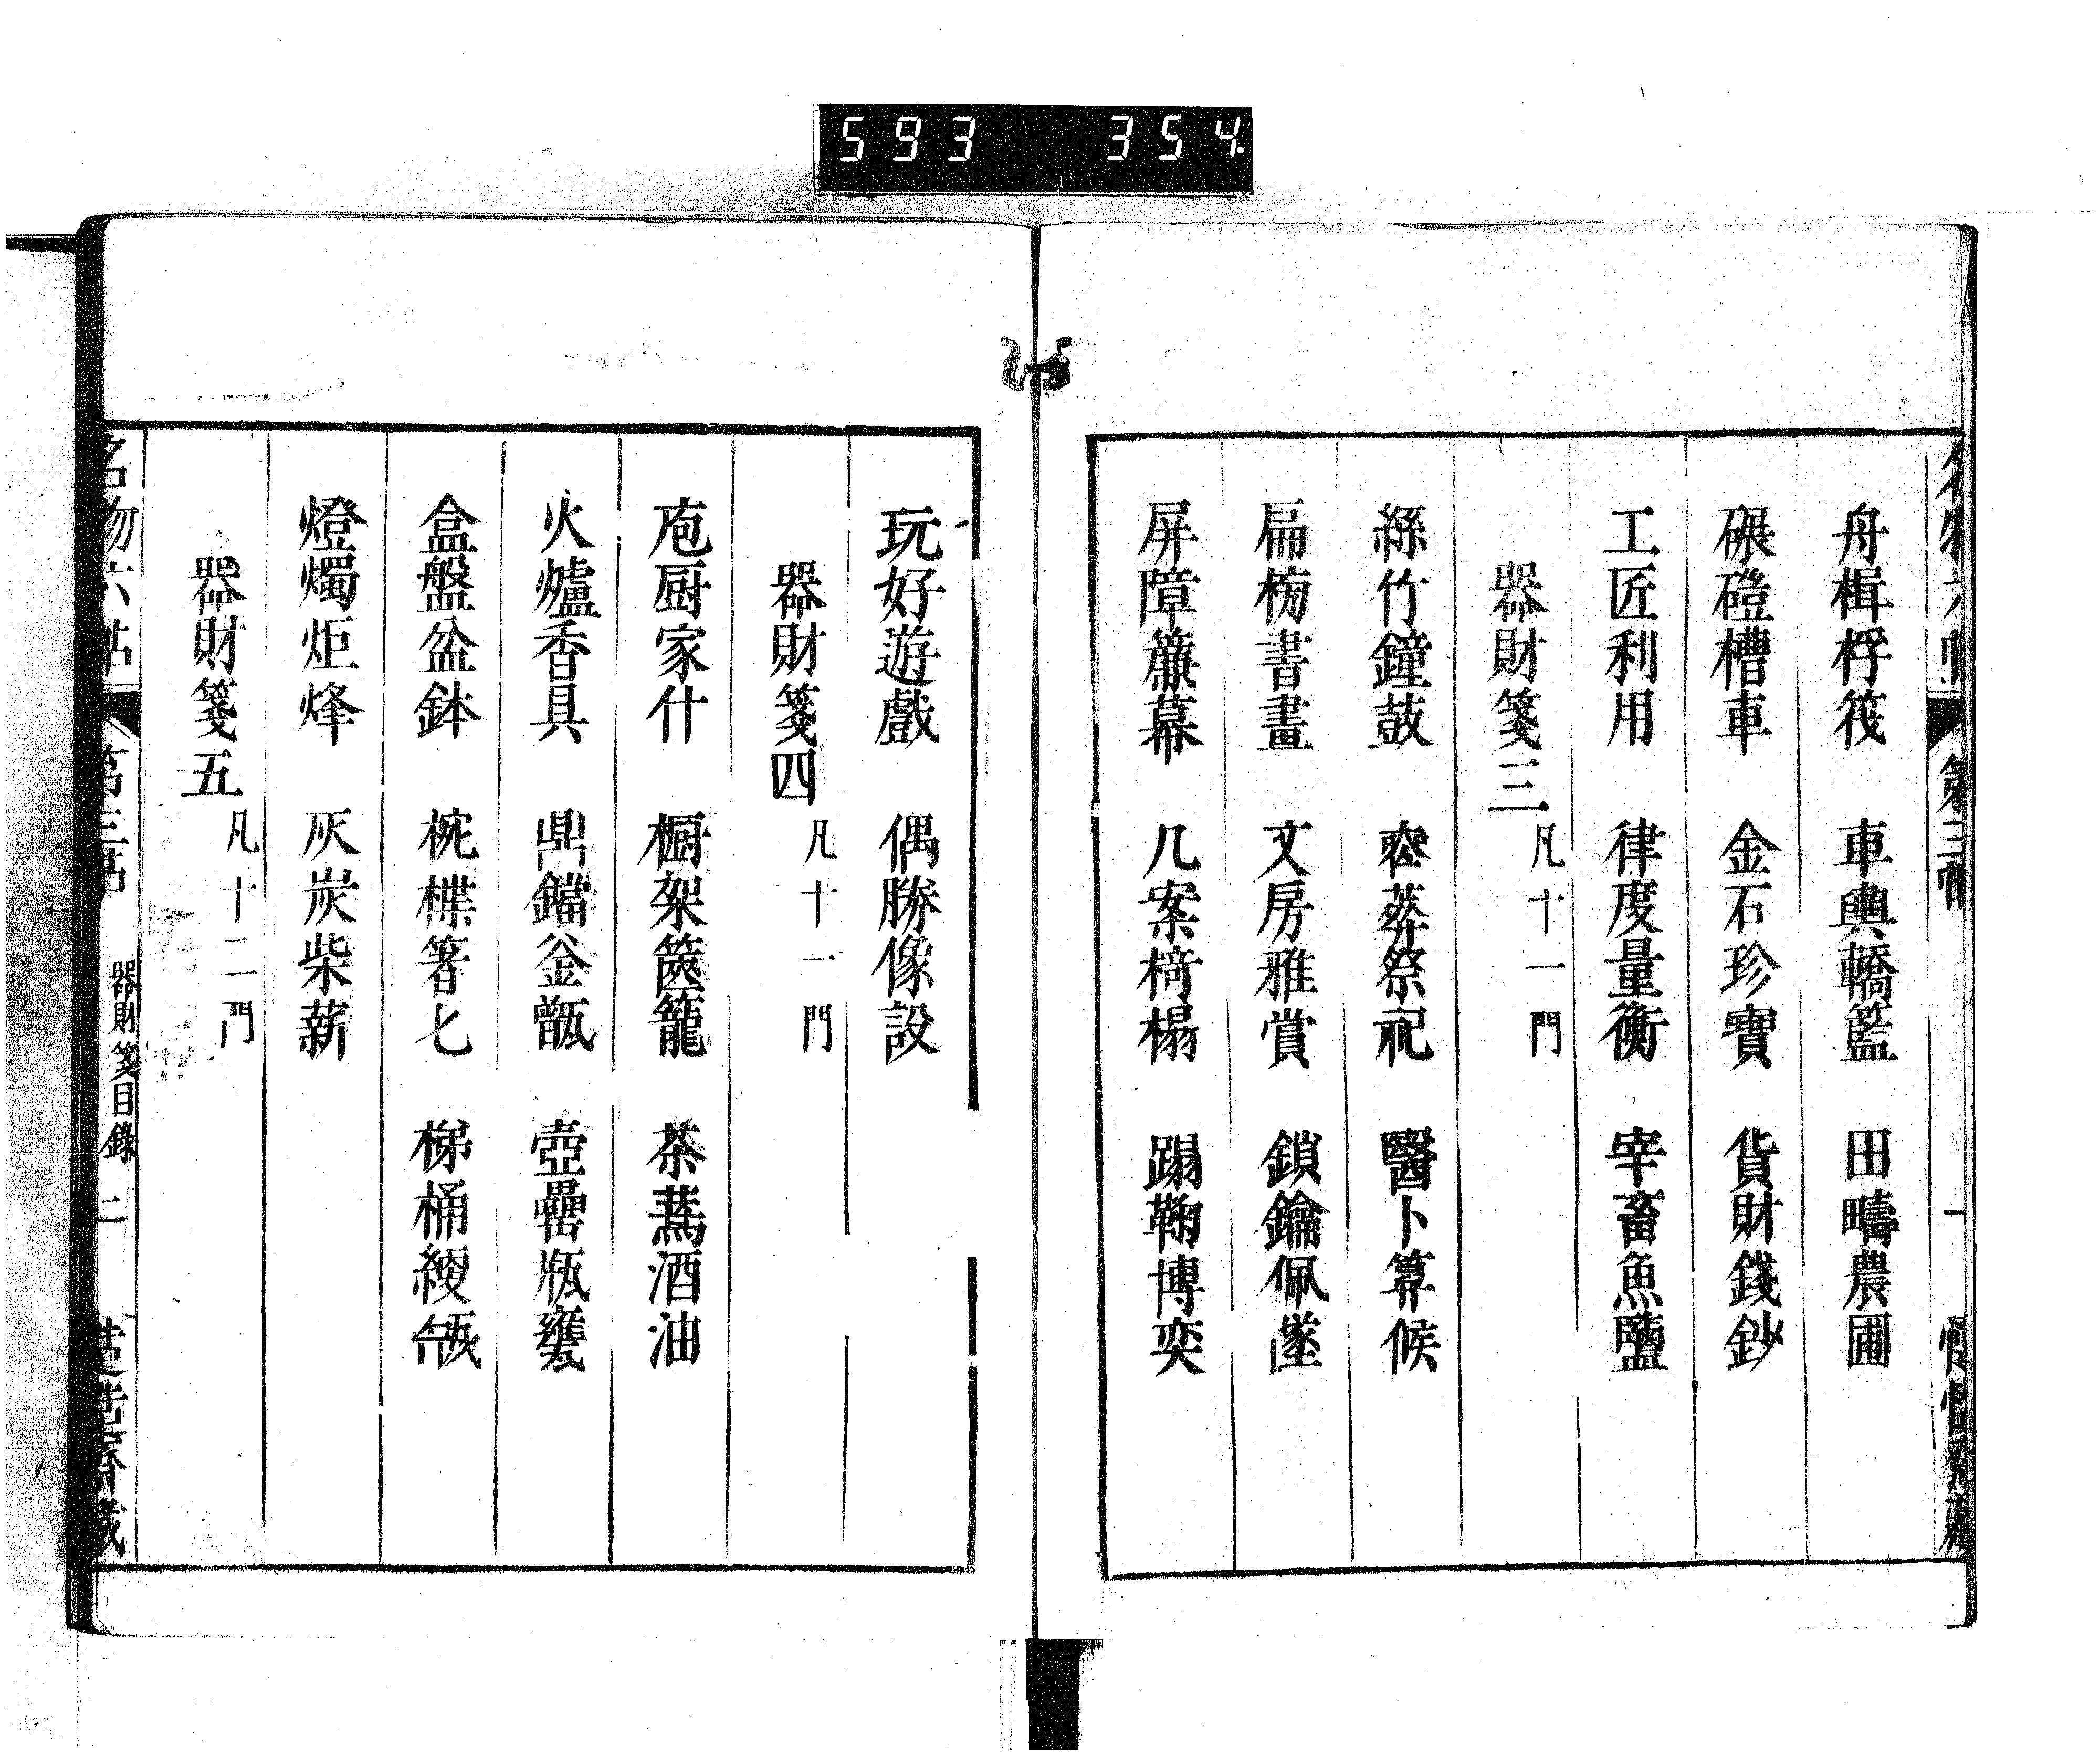 593 354.
舟楫桴筏 車輿轎籃 田疇農圃
碾磑槽車 金石珍寶 貨財錢鈔
工匠利用 律度量衡 宰畜魚鹽
器財箋三 凡十一門
絲竹鐘鼓 喪葬祭祀 醫卜算候
扁榜書畫 文房雅賞 鎖鑰佩墜
屏障簾幕 几案椅榻 蹋鞠博奕
玩好遊戲 偶勝像設
器財箋四 凡十一門
庖厨家什 櫥架篋籠 茶蔫酒油
火爐香具 鼎鐺釜甑 壺罍瓶甕
盒盤盆鉢 椀楪箸匕 梯桶綆瓴
燈燭炬烽 灰炭柴薪
器財箋五 凡十二門
名物六帖 第三帖 器財箋目錄 二